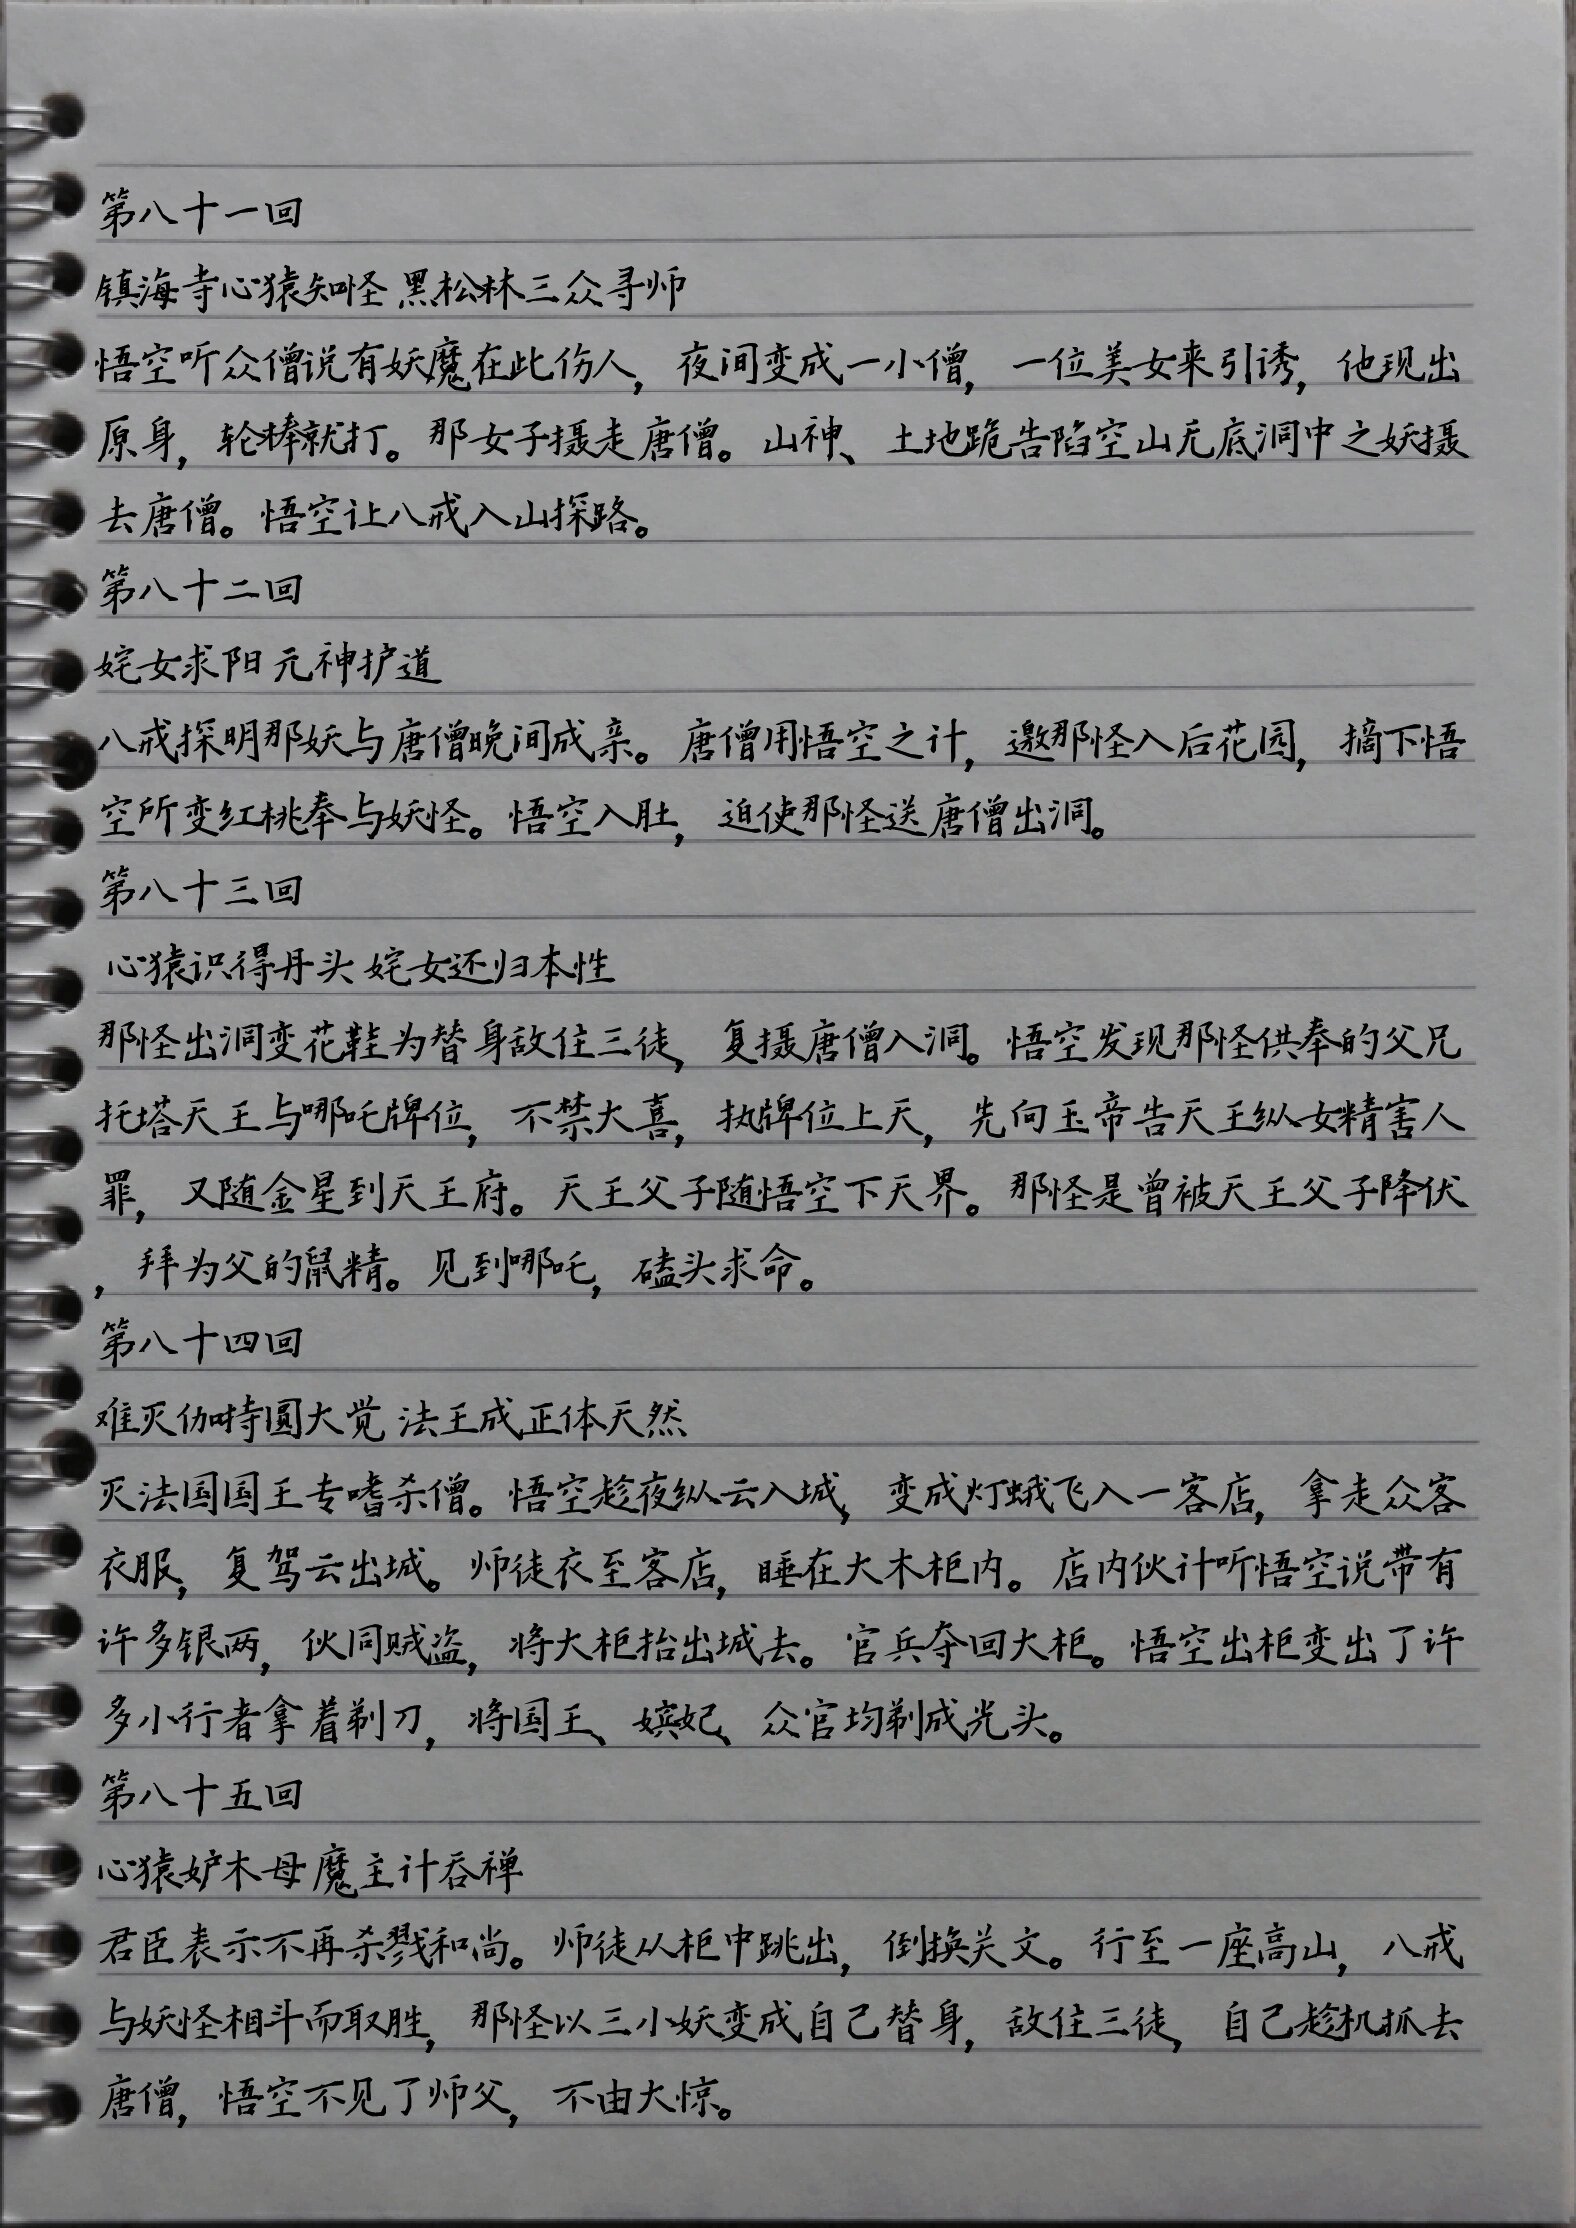 第八十一回
镇海寺心猿知怪 黑松林三众寻师
悟空听众僧说有妖魔在此伤人，夜间变成一小僧，一位美女来引诱，他现出
原身，轮棒就打。那女子摄走唐僧。山神、土地跪告陷空山无底洞中之妖摄
去唐僧。悟空让八戒入山探路。
第八十二回
姹女求阳 元神护道
八戒探明那妖与唐僧晚间成亲。唐僧用悟空之计，邀那怪入后花园，摘下悟
空所变红桃奉与妖怪。悟空入肚，迫使那怪送唐僧出洞。
第八十三回
心猿识得丹头 姹女还归本性
那怪出洞变花鞋为替身敌住三徒，复摄唐僧入洞。悟空发现那怪供奉的父兄
托塔天王与哪吒牌位，不禁大喜，执牌位上天，先向玉帝告天王纵女精害人
罪，又随金星到天王府。天王父子随悟空下天界。那怪是曾被天王父子降伏
，拜为父的鼠精。见到哪吒，磕头求命。
第八十四回
难灭伽持圆大觉 法王成正体天然
灭法国国王专嗜杀僧。悟空趁夜纵云入城，变成灯蛾飞入一客店，拿走众客
衣服，复驾云出城。师徒衣至客店，睡在大木柜内。店内伙计听悟空说带有
许多银两，伙同贼盗，将大柜抬出城去。官兵夺回大柜。悟空出柜变出了许
多小行者拿着剃刀，将国王、嫔妃、众官均剃成光头。
第八十五回
心猿妒木母 魔主计吞禅
君臣表示不再杀戮和尚。师徒从柜中跳出，倒换关文。行至一座高山，八戒
与妖怪相斗而取胜，那怪以三小妖变成自己替身，敌住三徒，自己趁机抓去
唐僧，悟空不见了师父，不由大惊。